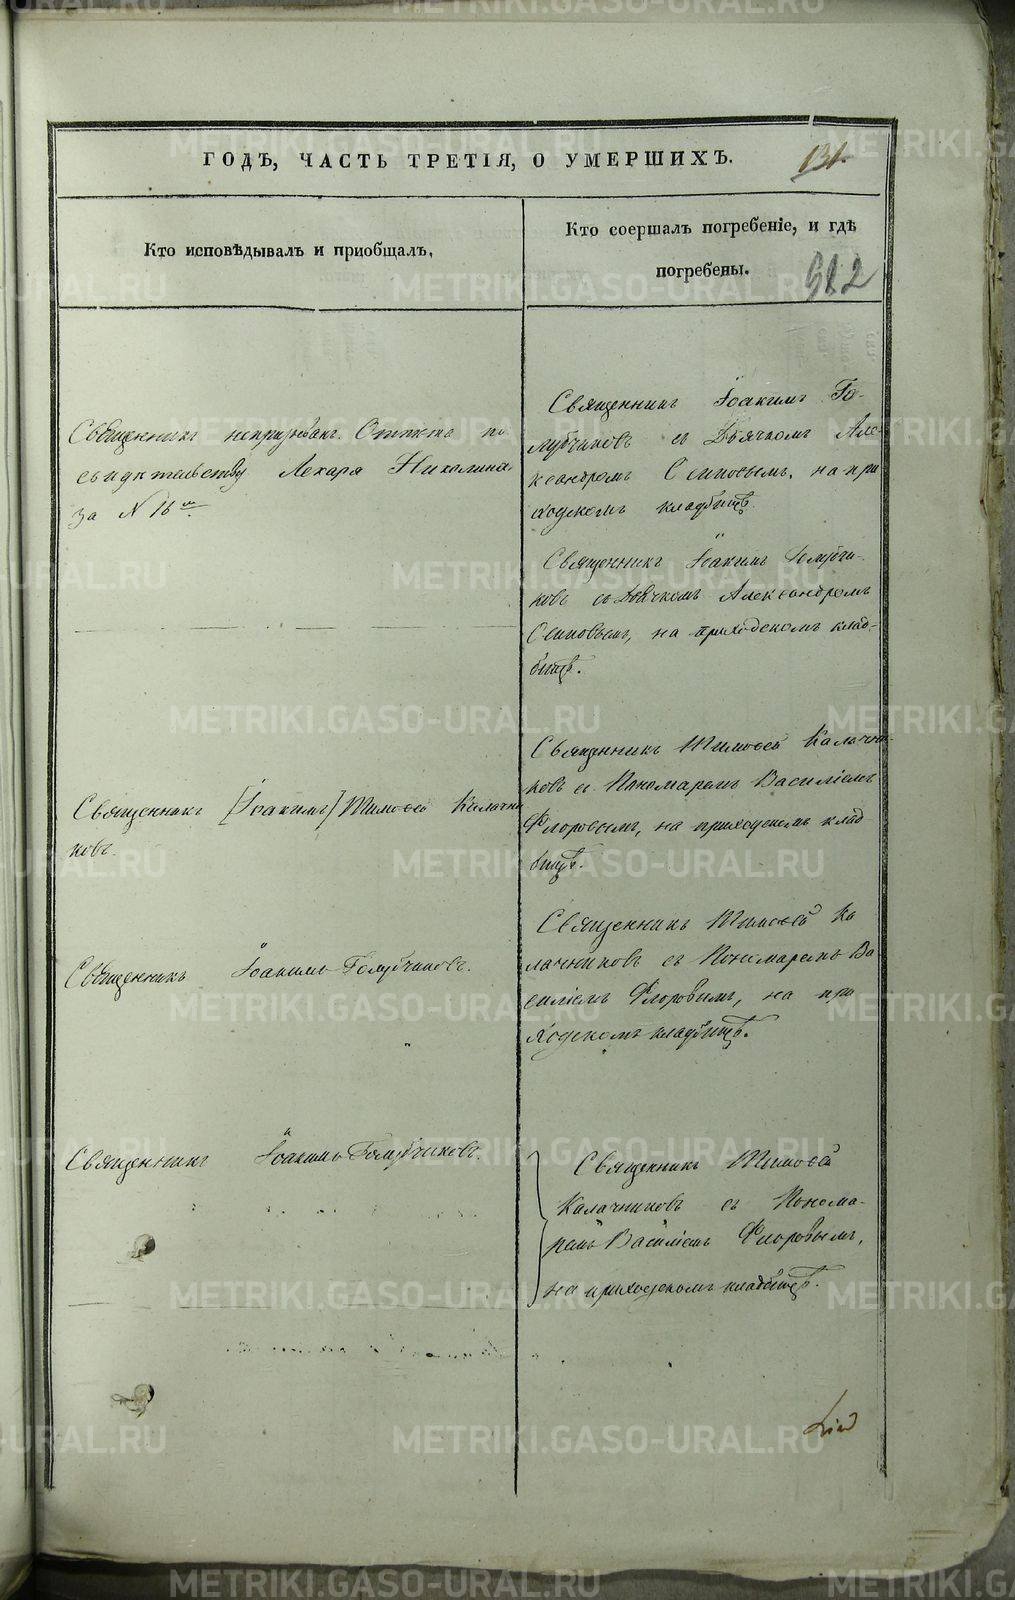 ГОДЪ, ЧАСТЬ ТРЕТІЯ, О УМЕРШИХЪ.
131.
Кто исповѣдывалъ и приобщалъ,
Кто соершалъ погребеніе, и гдѣ
погребены.
Священникъ непризванъ. по
свидѣтельству Лекаря Николина
за N 16
Священникъ Іоакимъ Го-
лубчиковъ съ Дьячкомъ Але-
ксандромъ Осиповымъ, на при
ходскомъ кладбищѣ
Священникъ Іоакимъ Голубчи-
ковъ съ Дьячкомъ Александромъ
Осиповымъ, на приходскомъ клад-
бищѣ.
Священникъ [Іоакимъ] Тимоѳей Калачни
ковъ.
Священникъ Тимоѳей Калачни
ковъ съ Пономаремъ Василіемъ
Флоровымъ, на приходскомъ клад
бищѣ.
Священникъ Іоакимъ Голубчиковъ.
Священникъ Тимоѳей Ка
лачниковъ съ Пономаремъ Ва
силіемъ Флоровымъ, на при
ходскомъ кладбищѣ.
Священникъ Іоакимъ Голубчиковъ.
Священникъ Тимоѳей
Калачниковъ съ Понома-
ремъ Василіемъ Флоровымъ,
на приходскомъ кладбищѣ.
METRIKI.GASO-URAL.RU